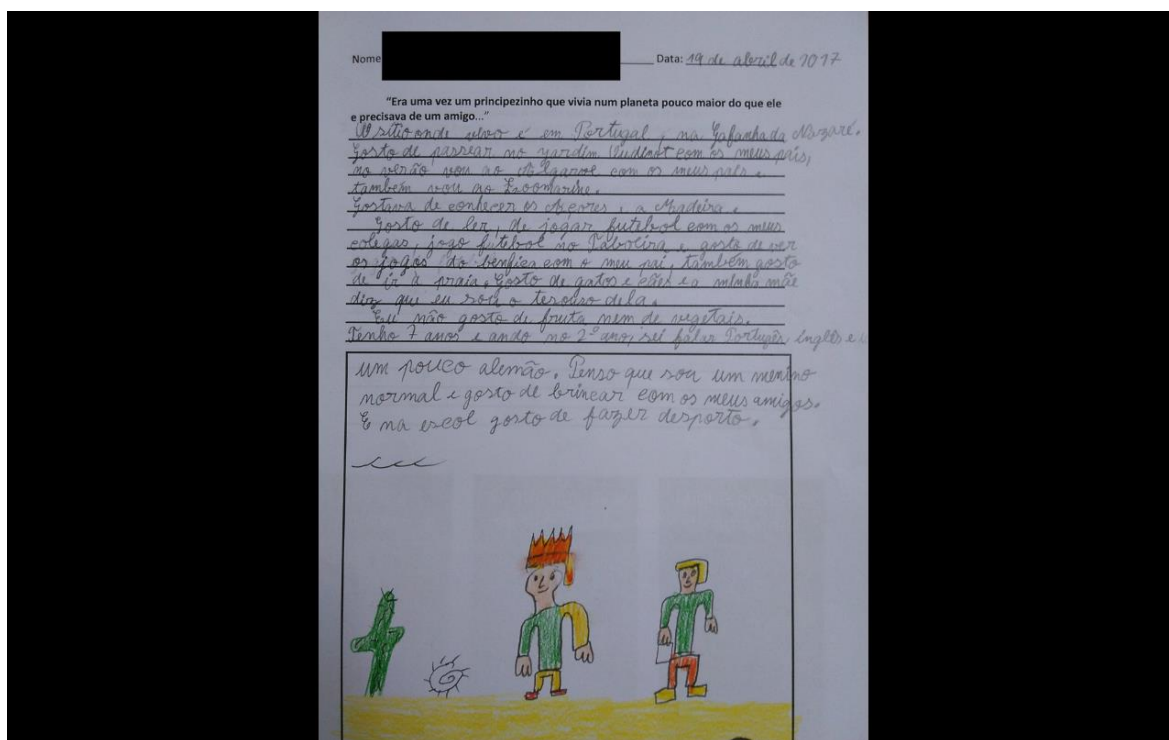 Nome Data: 19 de abril de 2017
"Era uma vez um principezinho que vivia num planeta pouco maior do que ele
e precisava de um amigo..."
O sítio onde vivo é em Portugal, na Gafanha da Nazaré.
Gosto de passear no yardim Oudinot com os meus pais,
no verão vou ao Algarve com os meus pais e
também vou ao Zoomarine.
Gostava de conhecer os Açores e a Madeira.
Gosto de ler, de jogar futebol com os meus
colegas, jogo futebol no Taboeira e gosto de ver
os jogos do benfica com o meu pai, também gosto
de ir à praia. Gosto de gatos e cães e a minha mãe
diz que eu sou o tesouso dela.
Eu não gosto de fruta nem de vegetais.
Tenho 7 anos e ando no 2º ano, sei falar Português, inglês e
um pouco alemão. Penso que sou um menino
normal e gosto de brincar com os meus amigos.
E na escol gosto de fazer desporto.